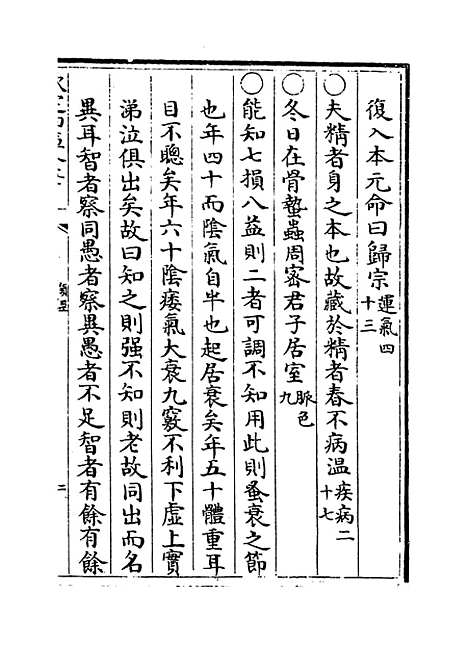 復入本元命曰歸宗運氣四十三
○夫精者身之本也故藏於精者春不病温疾病二十七
○冬日在骨蟄蟲周密君子居室脈色九
○能知七損八益則二者可調不知用此則蚤衰之節
也年四十而陰氣自半也起居衰矣年五十體重耳
目不聰矣年六十陰痿氣大衰九竅不利下虚上實
涕泣俱出矣故曰知之則强不知則老故同出而名
異耳智者察同愚者察異愚者不足智者有餘有餘